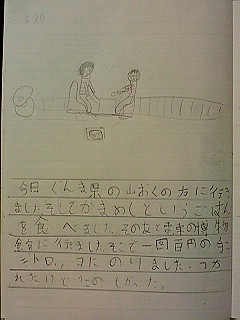 今日ぐんま県の山おくの方に行き
ましたそしてかまめしというごはん
を食べました。そのあと電車の博物
館に行きましたそこで一回百円の手こ
ぎトロッコにのりました。つか
れたけどたのしかった。